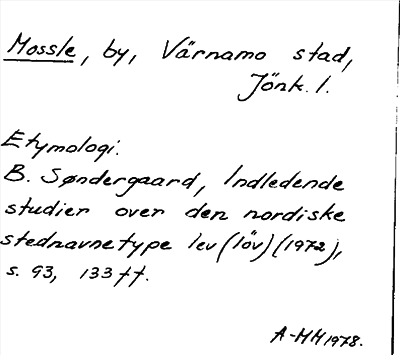 Mossle, by, Värnamo stad,
Jönk. l.
Etymologi.
B. Søndergaard, Indledende
studier over den nordiske
stednavnetype lev (löv) (1972),
s. 93, 133 ff.
A-MM 1978.